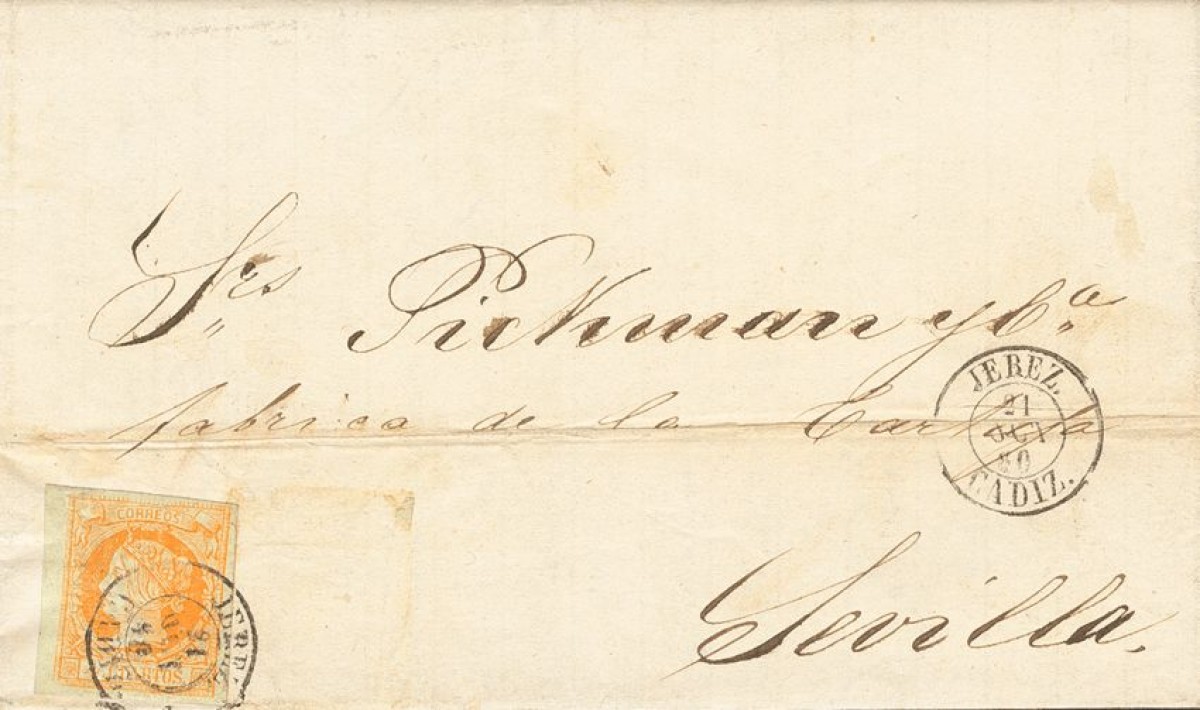 Srs Pickman y Ca
fabrica de la Cartuja
Sevilla.
JEREZ.
21
60
CADIZ.
CORREOS
JERE